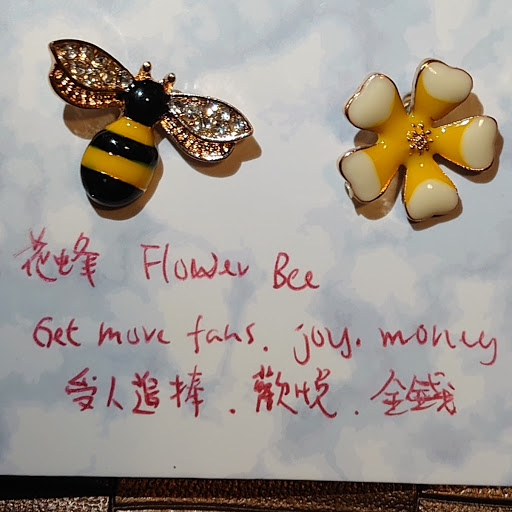 花蜂 Flower Bee
Get more fans. joy. money
受人追捧. 歡悅. 金錢